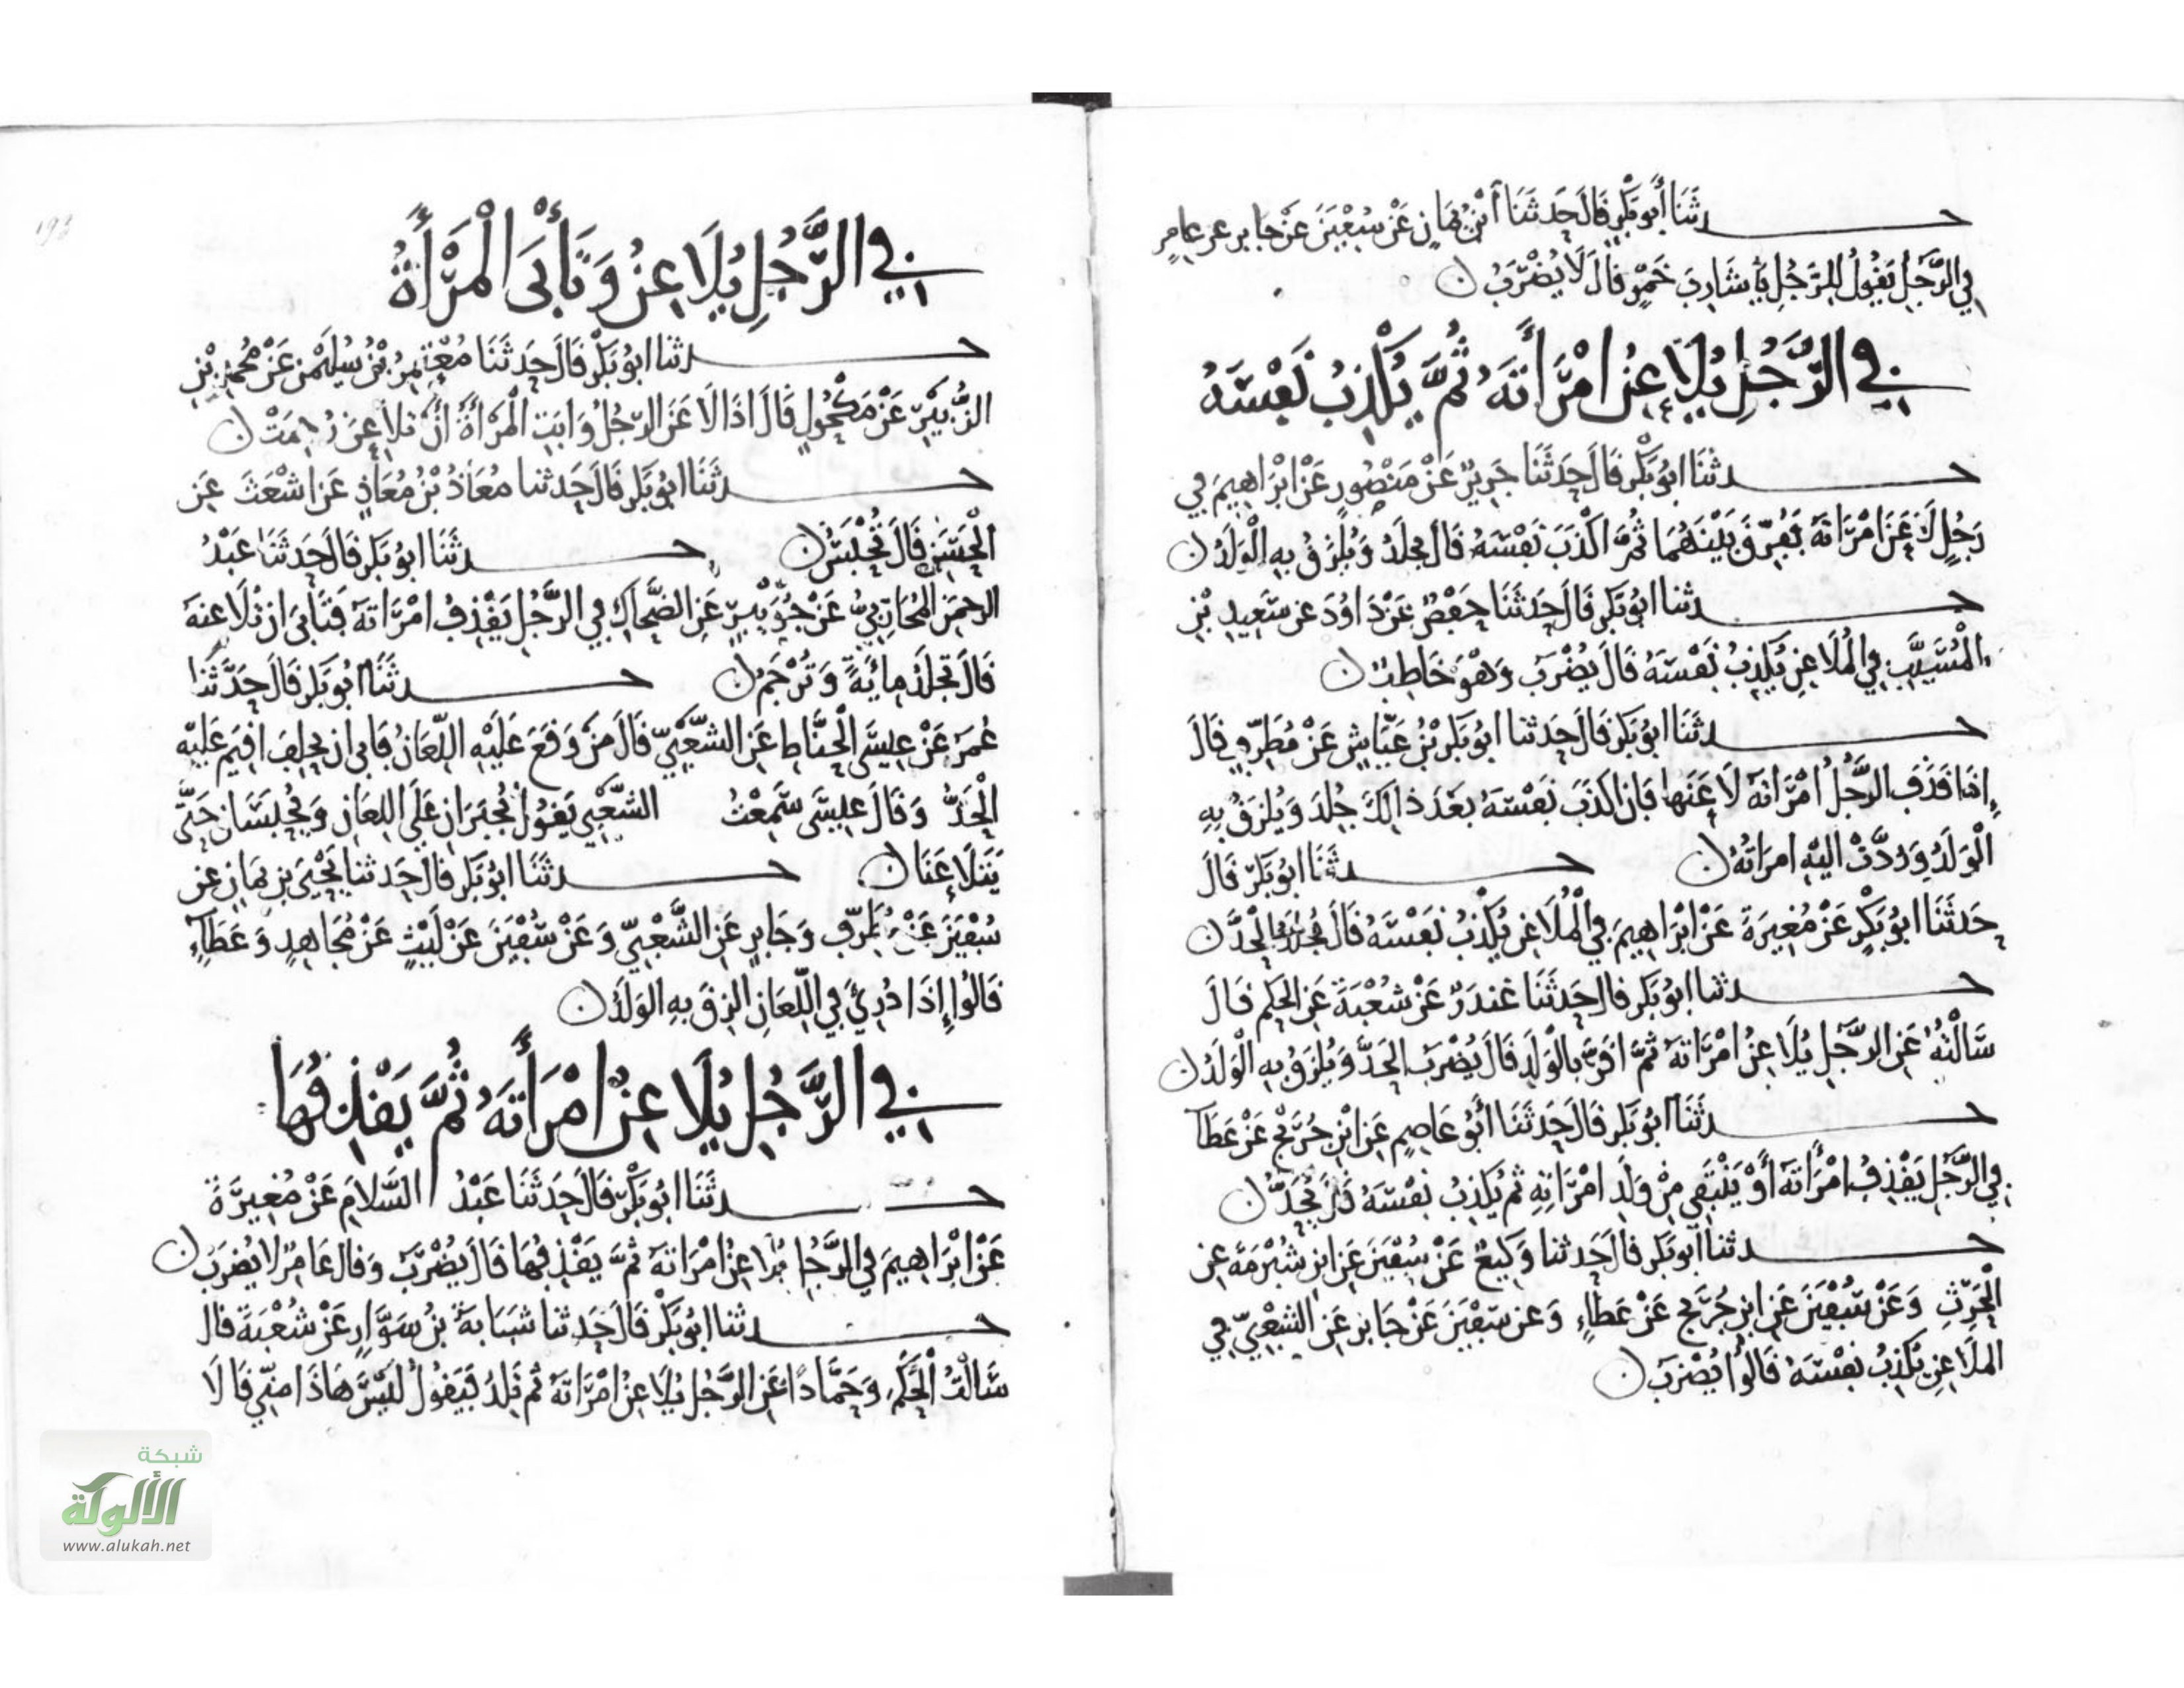 حدثنا أبو بكر قال حدثنا ابن يمان عن سفين عن جابر عن عامر
في الرجل يقول للرجل يا شارب خمر قال لا يضرب
في الرجل يلاعن امرأته ثم يكذب نفسه
حدثنا ابو بكر قال حدثنا جرير عن منصور عن ابراهيم في
رجل لاعن امراته ففرق بينهما ثم اكذب نفسه قال يجلد ويلزق به الولد
حدثنا ابو بكر قال حدثنا حفص عن داود عن سعيد بن
المسيب في الملاعن يكذب نفسه قال يضرب وهو خاطب
حدثنا ابو بكر قال حدثنا ابو بكر بن عياش عن مطرف قال
إذا قذف الرجل امراته لاعنها فان اكذب نفسه بعد ذالك جلد ويلزق به
الولد وردت اليه امراته حدثنا ابو بكر قال
حدثنا ابو بكر عن مغيرة عن ابراهيم في الملاعن يكذب نفسه قال الحد
حدثنا ابو بكر قال حدثنا غندر عن شعبة عن الحكم قال
سالته عن الرجل يلاعن امراته ثم اقر بالولد قال يضرب الحد ويلزق به الولد
حدثنا ابو بكر قال حدثنا أبو عاصم عن ابن جريج عن عطا
في الرجل يقذف امرأته أو ينتفي من ولد امراته ثم يكذب نفسه قال يحد
حدثنا ابو بكر قال حدثنا وكيع عن سفين عن ابن شبرمة عن
الحرث وعن سفين عن ابن جريج عن عطاء وعن سفين عن جابر عن الشعبي في
الملاعن يكذب نفسه قالوا يضرب
في الرجل يلاعن وتأبى المرأة
حدثنا ابو بكر قال حدثنا معتمر بن سليمن عن محمد بن
الزبير عن مكحول قال اذا لاعن الرجل وابت المرأة أن تلاعن رجمت
حدثنا ابو بكر قال حدثنا معاذ بن معاذ عن اشعث عن
الحسن قال تحبس حدثنا ابو بكر قال حدثنا عبد
الرحمن المحاربي عن جويبر عن الضحاك في الرجل يقذف امراته فتابى ان تلاعنه
قال تجلد مائة وترجم حدثنا ابو بكر قال حدثنا
عمر عن عيسى الحناط عن الشعبي قال من وقع عليه اللعان فابى ان يحلف اقيم عليه
الحد وقال عيسى سمعت الشعبي يقول يجبران على اللعان ويحبسان حتى
يتلاعنا حدثنا ابو بكر قال حدثنا يحيى بن يمان عن
سفين عن مطرف وجابر عن الشعبي وعن سفين عن ليث عن مجاهد وعطاء
قالوا إذا درئ في اللعان الزق به الولد
في الرجل يلاعن امرأته ثم يقذفها
حدثنا ابو بكر قال حدثنا عبد السلام عن مغيرة
عن ابراهيم في الرجل يلاعن امراته ثم يقذفها قال يضرب وقال عامر لا يضرب
حدثنا ابو بكر قال حدثنا شبابة بن سوار عن شعبة قال
سالت الحكم وحمادا عن الرجل يلاعن امراته ثم تلد فيقول ليس هاذا مني قالا
شبكة
الألوكة
www.alukah.net